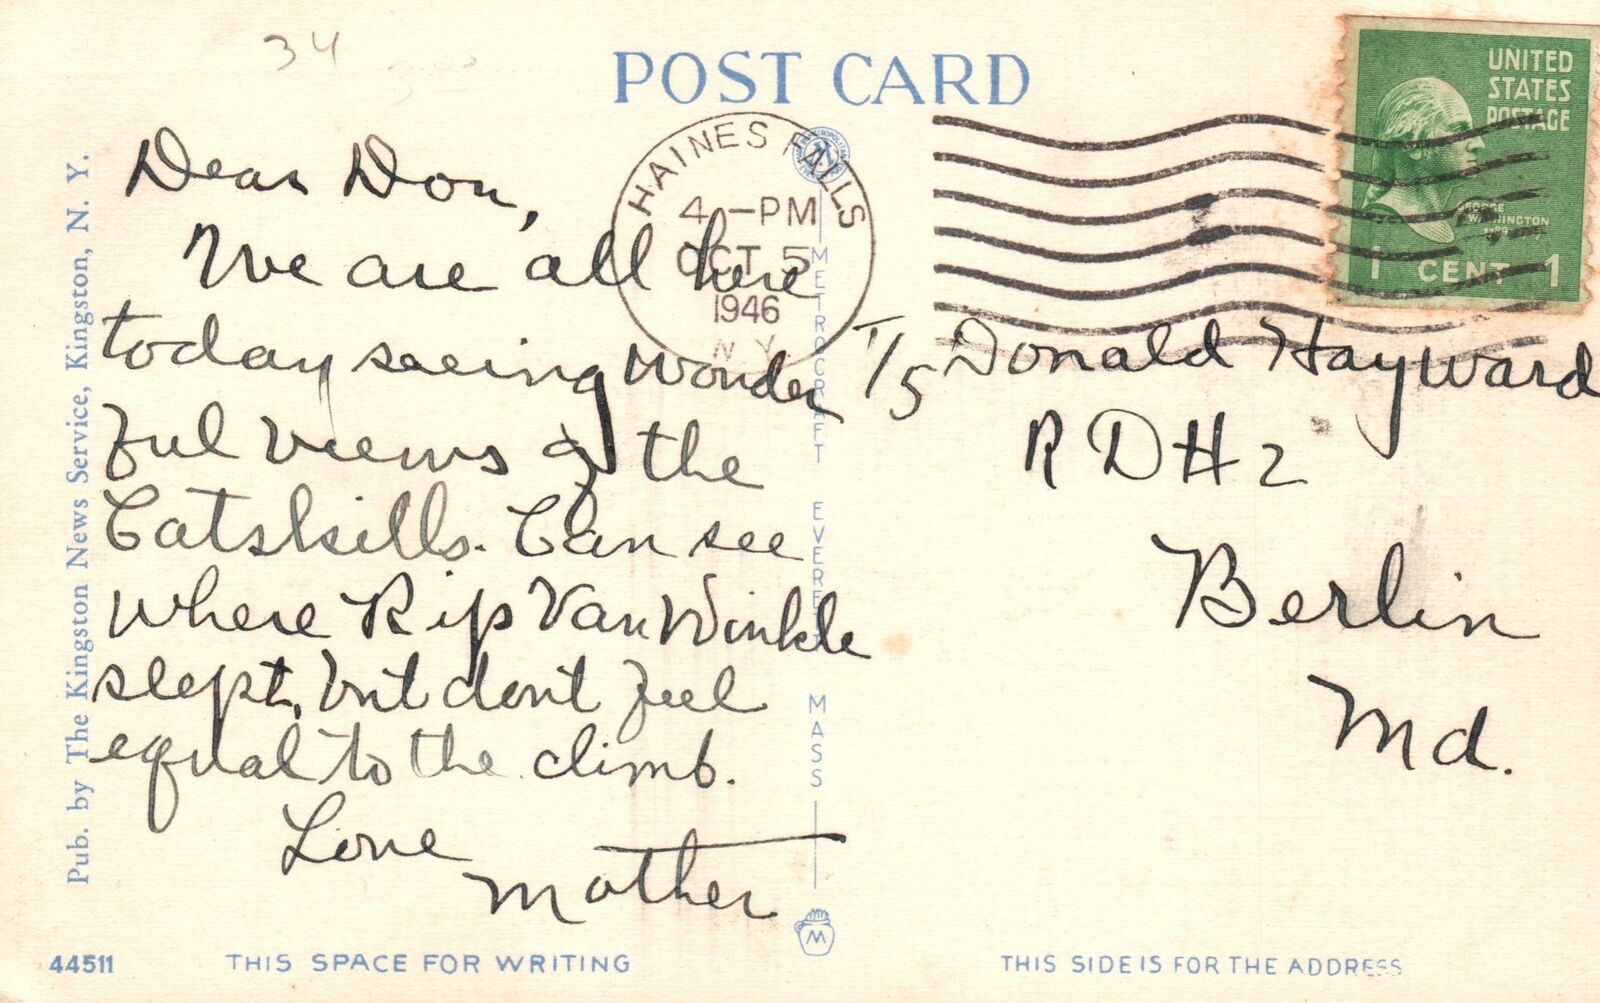 34
POST CARD
UNITED
STATES
POSTAGE
GEORGE
WASHINGTON
1 CENT 1
HAINES FALLS
4-PM
OCT 5
1946
N.Y.
Dear Don,
We are all here
today seeing wonder
ful views of the
Catskills. Can see
where Rip Van Winkle
slept, but dont feel
equal to the climb.
Love
Mother
T/5 Donald Hayward
R D # 2
Berlin
Md.
Pub. by The Kingston News Service, Kingston, N. Y.
METROCRAFT EVERETT MASS
M
44511
THIS SPACE FOR WRITING
THIS SIDE IS FOR THE ADDRESS